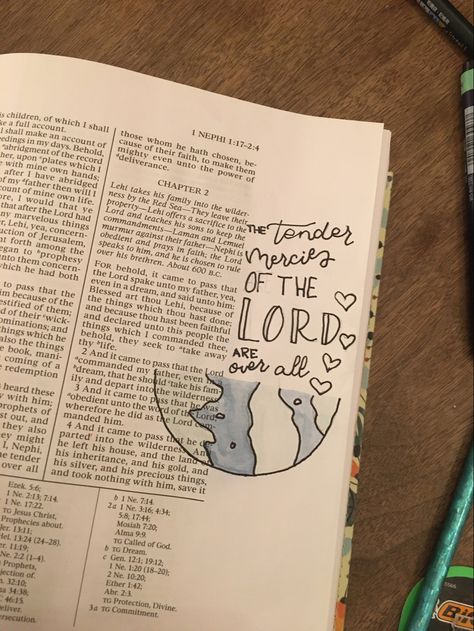 1 NEPHI 1:17–2:4
is children, of which I shall
ke a full account.
I shall make an account of
edings in my days. Behold,
abridgment of the record
her, upon plates which I
with mine own hands;
after I have abridged
of my father then will I
ount of mine own life.
ore, I would that ye
that after the Lord had
ny marvelous things
her, Lehi, yea, concern-
uction of Jerusalem,
nt forth among the
egan to prophesy
unto them concern-
which he had both
to pass that the
im because of the
estified of them;
d of their wick-
ominations; and
hings which he
also the things
e book, mani-
coming of a
redemption
heard these
y with him;
prophets of
st out, and
they also
ey might
I, Nephi,
e tender
over all
Ezek. 5:6;
1 Ne. 2:13; 7:14.
1 Ne. 17:22.
TG Jesus Christ,
Prophecies about.
Jer. 13:11;
Hel. 13:24 (24–28).
Jer. 11:19;
Ne. 2:2 (1–4).
Prophets,
jection of.
n. 32:10;
a 34:38;
C 46:15.
Deliver.
ersecution.
those whom he hath chosen, be-
cause of their faith, to make them
mighty even unto the power of
a deliverance.
CHAPTER 2
Lehi takes his family into the wilder-
ness by the Red Sea—They leave their
property—Lehi offers a sacrifice to the
Lord and teaches his sons to keep the
commandments—Laman and Lemuel
murmur against their father—Nephi is
obedient and prays in faith; the Lord
speaks to him, and he is chosen to rule
over his brethren. About 600 B.C.
FOR behold, it came to pass that
the Lord spake unto my father, yea,
even in a dream, and said unto him:
Blessed art thou Lehi, because of
the things which thou hast done;
and because thou hast been faithful
and declared unto this people the
things which I commanded thee,
behold, they seek to a take away
thy b life.
2 And it came to pass that the Lord
a commanded my father, even in a
b dream, that he should c take his fam-
ily and depart into the wilderness.
3 And it came to pass that he was
a obedient unto the word of the Lord,
wherefore he did as the Lord com-
manded him.
4 And it came to pass that he de-
parted into the wilderness. And
he left his house, and the land of
his inheritance, and his gold, and
his silver, and his precious things,
and took nothing with him, save it
b 1 Ne. 7:14.
2 a 1 Ne. 3:16; 4:34;
5:8; 17:44;
Mosiah 7:20;
Alma 9:9.
TG Called of God.
b TG Dream.
c Gen. 12:1; 19:12;
1 Ne. 1:20 (18–20);
2 Ne. 10:20;
Ether 1:42;
Abr. 2:3.
TG Protection, Divine.
3 a TG Commitment.
THE tender
mercies
OF THE
LORD
ARE
over all
BIC